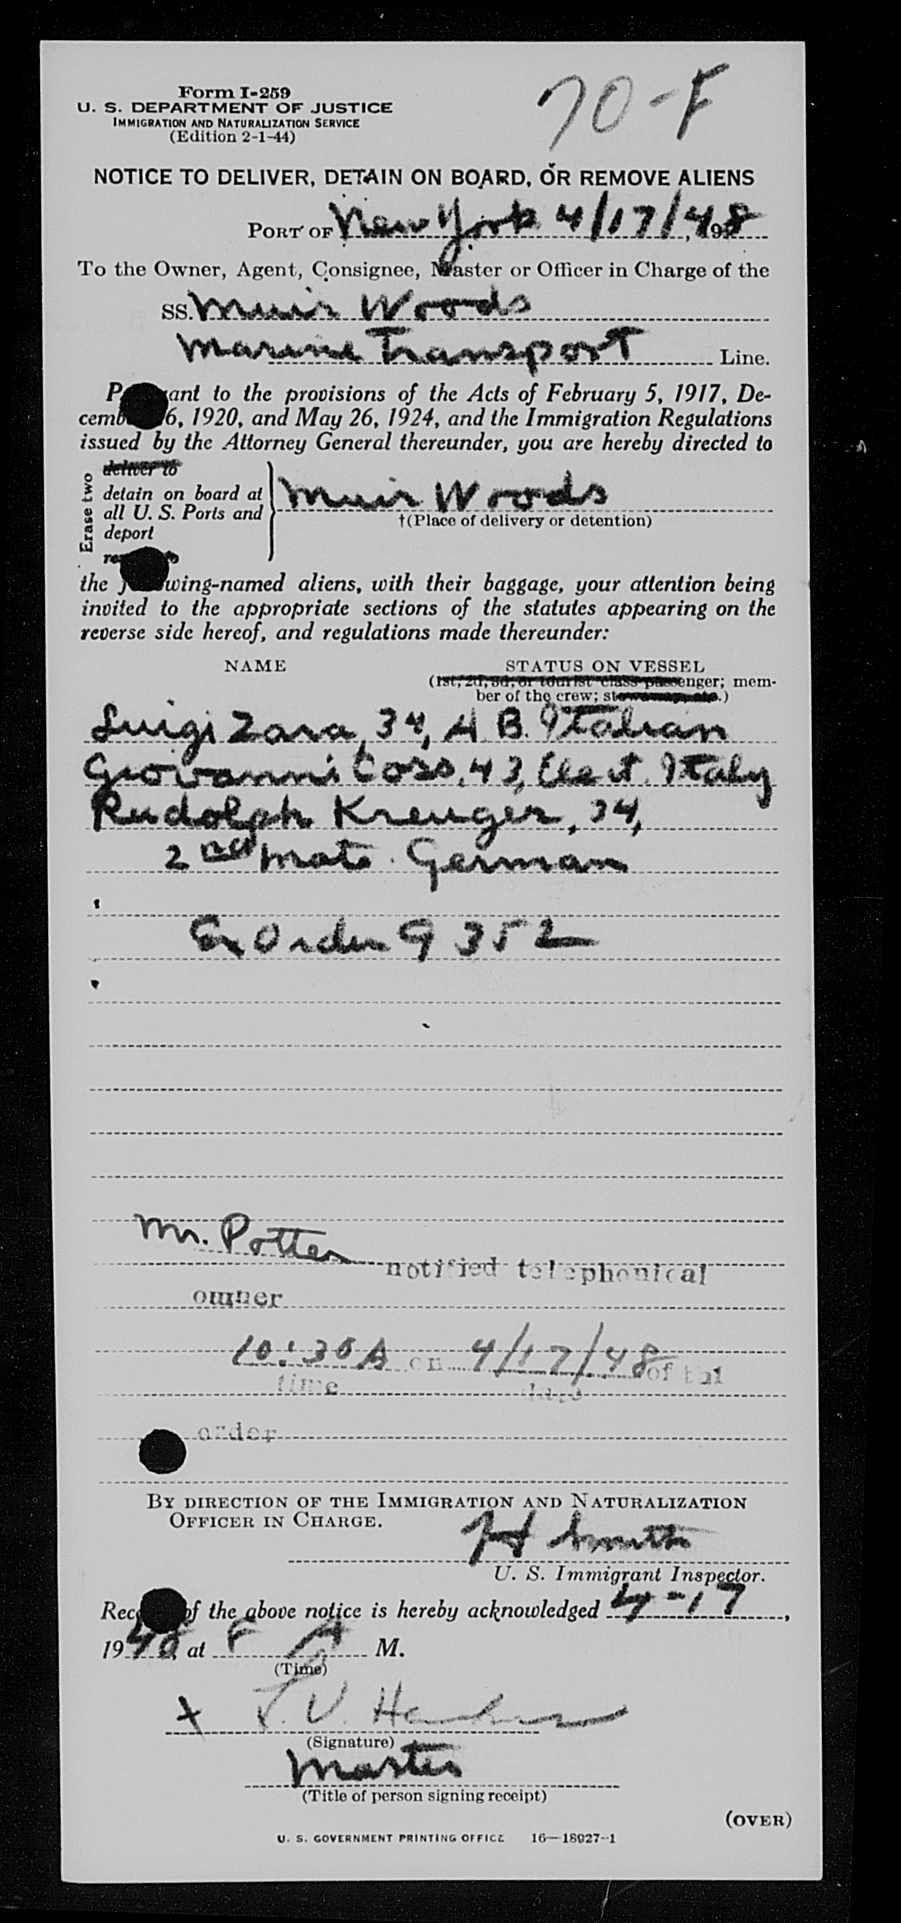 Form I-259
U. S. DEPARTMENT OF JUSTICE
IMMIGRATION AND NATURALIZATION SERVICE
(Edition 2-1-44)
70-F
NOTICE TO DELIVER, DETAIN ON BOARD, OR REMOVE ALIENS
PORT OF New York 4/17/48, 19
To the Owner, Agent, Consignee, Master or Officer in Charge of the
SS. Muir Woods
Marine Transport Line.
ant to the provisions of the Acts of February 5, 1917, De-
cemb 6, 1920, and May 26, 1924, and the Immigration Regulations
issued by the Attorney General thereunder, you are hereby directed to
Erase two
deliver to
detain on board at
all U. S. Ports and
deport
Muir Woods
†(Place of delivery or detention)
the following-named aliens, with their baggage, your attention being
invited to the appropriate sections of the statutes appearing on the
reverse side hereof, and regulations made thereunder:
NAME
STATUS ON VESSEL
(1st, 2d, 3d, or tourist class passenger; mem-
ber of the crew; .)
Luigi Zara, 34, A B. Italian
Giovanni Coss, 43, Elect. Italy
Rudolph Kreuger, 34,
2nd Mate. German
Ex Order 9352
Mr. Potter notified telephonical
owner
10:30 A on 4/17/48 of
time date
order
BY DIRECTION OF THE IMMIGRATION AND NATURALIZATION
OFFICER IN CHARGE.
Smith
U. S. Immigrant Inspector.
Rec of the above notice is hereby acknowledged 4-17,
1948 at A M.
(Time)
x V.
(Signature)
Master
(Title of person signing receipt)
(OVER)
U. S. GOVERNMENT PRINTING OFFICE 16—18927-1